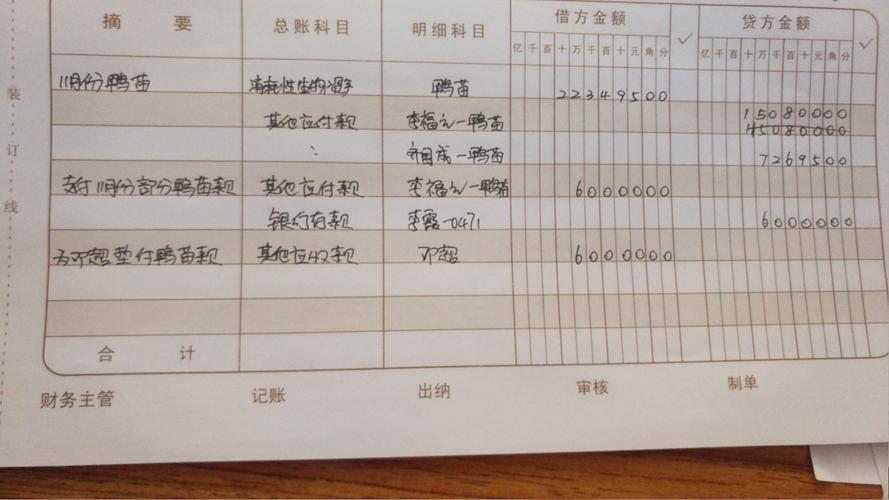 摘 要 总账科目 明细科目 借方金额 ✓ 贷方金额 ✓
亿 千 百 十 万 千 百 十 元 角 分 亿 千 百 十 万 千 百 十 元 角 分
11月份鸭苗 消耗性生物资产 鸭苗 22349500
其他应付款 李福元一鸭苗 15080000
45080000
: 一鸭苗 7269500
支付11月份部分鸭苗款 其他应付款 李福元一鸭苗 6000000
银行存款 李霞-0471 6000000
为邓超垫付鸭苗款 其他应收款 邓超 6000000
合 计
财务主管 记账 出纳 审核 制单
装
订
线